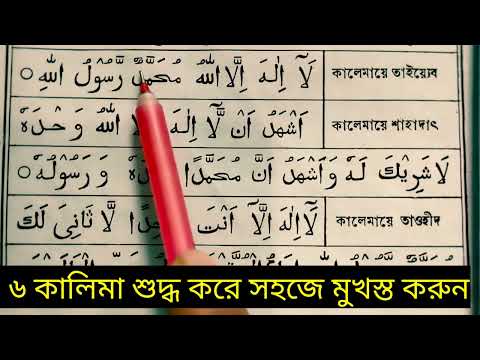 لَآ اِلٰهَ اِلَّا اللّٰهُ مُحَمَّدٌ رَّسُوْلُ اللّٰهِ ○ কালেমায়ে তাইয়োব
اَشْهَدُ اَنْ لَّآ اِلٰهَ اللّٰهُ وَحْدَهٗ কালেমায়ে শাহাদাৎ
لَاشَرِيْكَ لَهٗ وَاَشْهَدُ اَنَّ مُحَمَّدًا وَرَسُوْلُهٗ ○
لَآ اِلٰهَ اِلَّآ اَنْتَ لَّا ثَانِىَ لَكَ কালেমায়ে তাওহীদ
৬ কালিমা শুদ্ধ করে সহজে মুখস্ত করুন